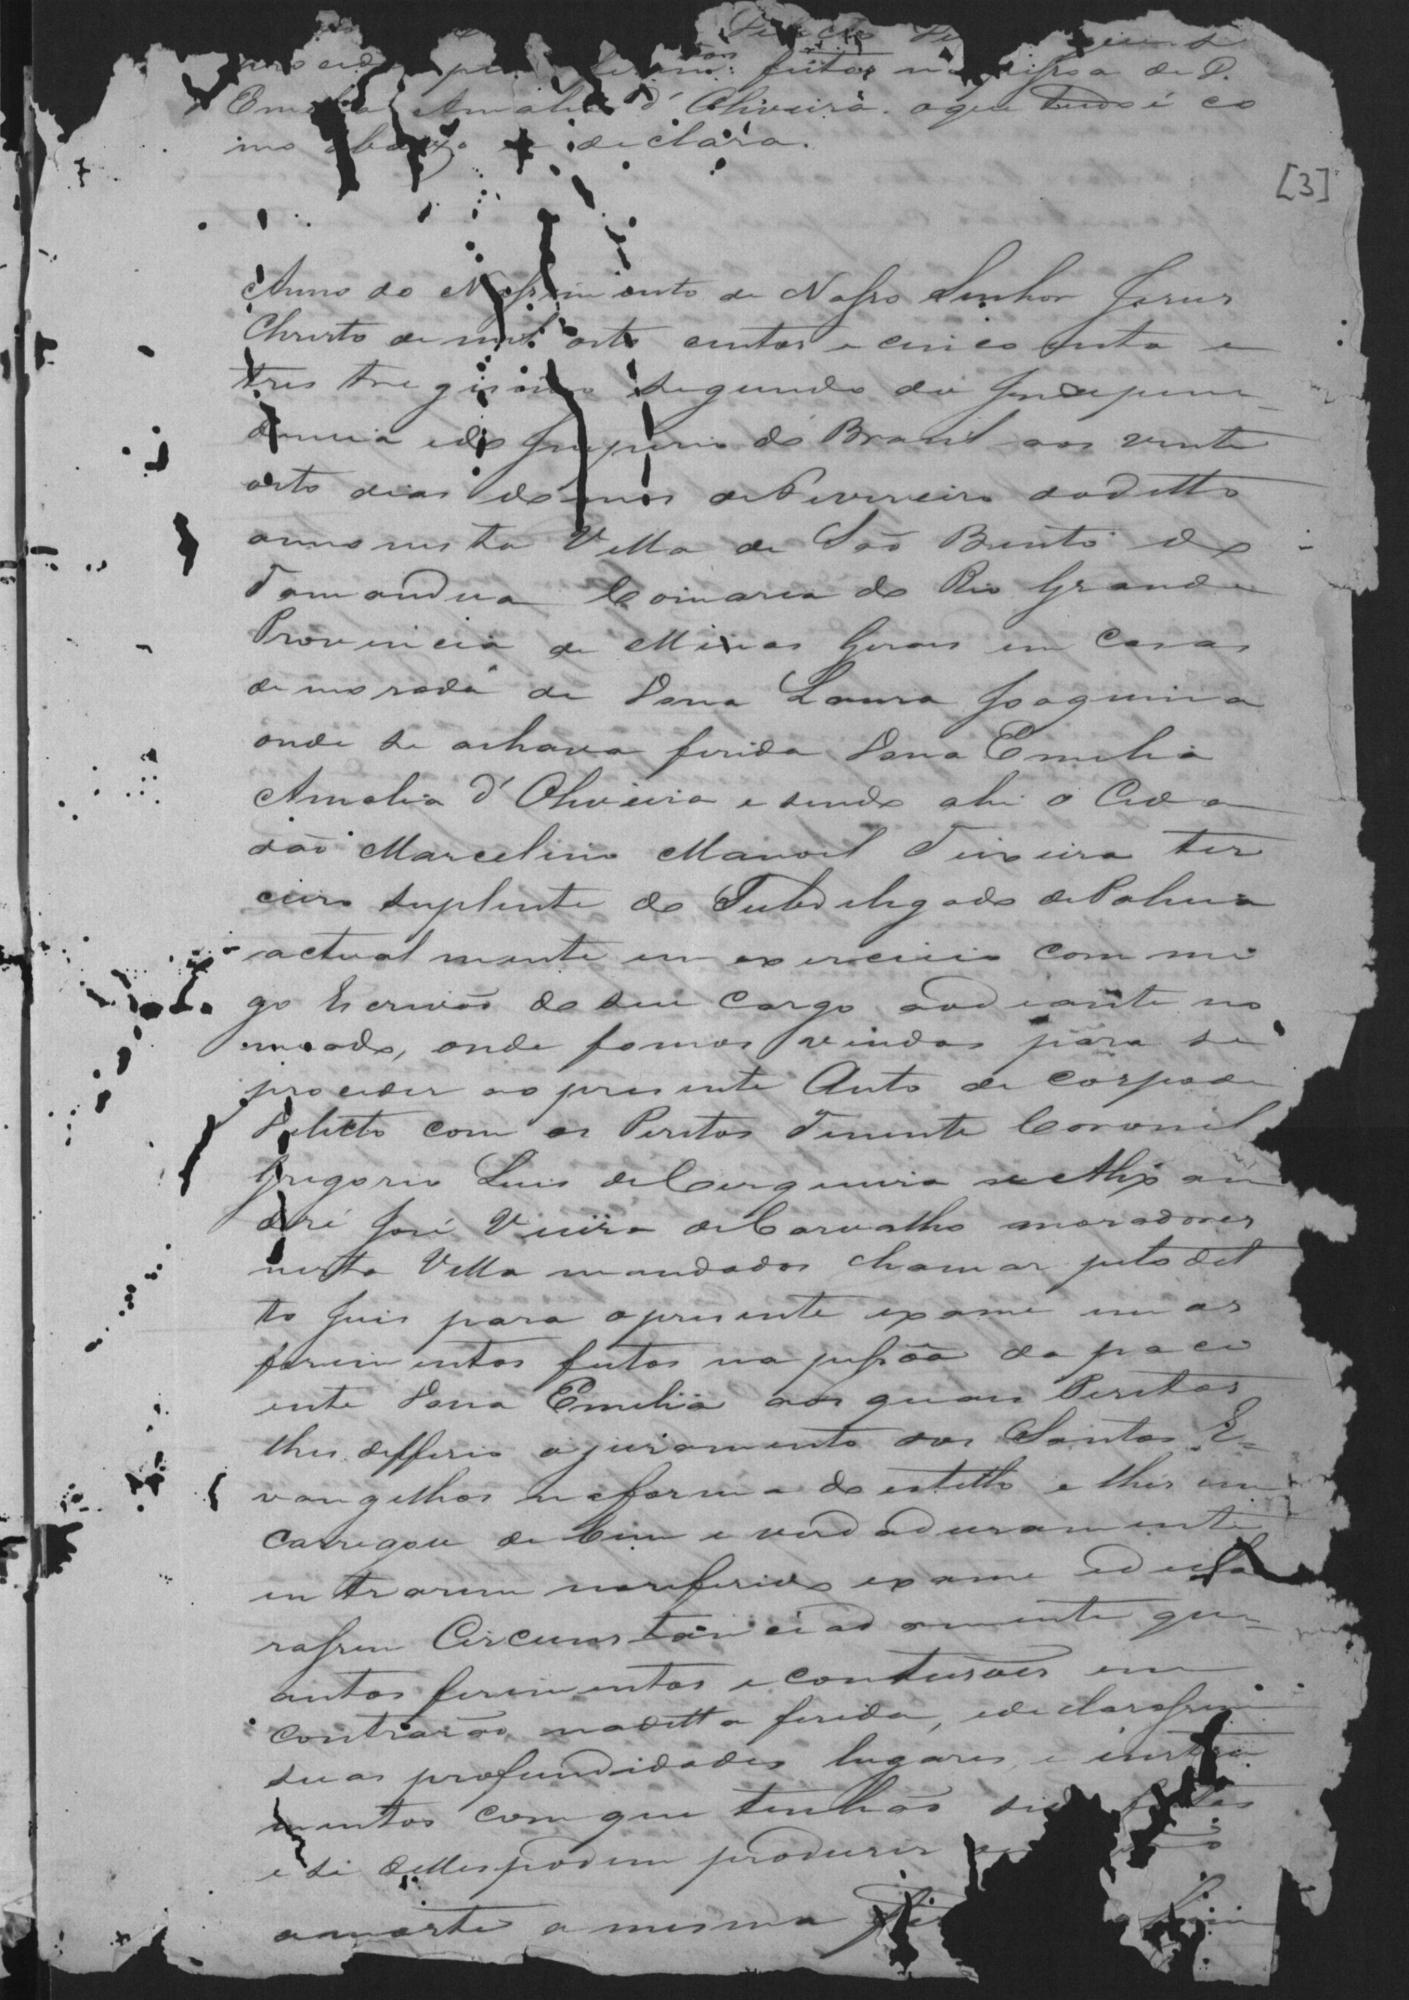 Delicto
proceder feitos na pessoa de D.
Emelia Amalia d'Oliveira. o que tudo é co
mo abaixo se declara.
[3]
Anno do Nascimento de Nosso Senhor Jesus
Christo de mil oito centos e cincoenta e
tres tregisimo segundo da Indepen-
dencia e do Imperio do Brasil aos vinte
oito dias do mes de Fevereiro do ditto
anno nesta Villa de São Bento do
Tamanduá Comarca do Rio Grande
Provincia de Minas Gerais em casas
de morada de Dona Laura Joaquina
onde se achava ferida Dona Emelia
Amalia d'Oliveira e sendo ahi o Cida
dão Marcelino Manoel Teixeira ter
ceiro suplente do Subdelegado de Policia
actualmente em exercicio com mi
go Escrivão do seu cargo aodiante no
meado, onde fomos vindos para se
proceder ao presente Auto de corpo de
Delicto com os Peritos Tenente Coronel
Gregorio Luis de Cerqueira e Alixan
dré José Vieira de Carvalho moradores
nesta Villa mandados chamar pelo dit
to Juis para o presente exame em os
ferimentos feitos na pessôa da paci
ente Dona Emelia aos quais Peritos
lhes defferio o juramento dos Santos E-
vangelhos na forma do estillo e lhes en
carregou de bem e verdadeiramente
entrarem no referido exame e decla
rassem Circunstanciadamente qu-
antos ferimentos e contusões en
contrarão na ditta ferida, e declarassem
suas profundidades lugares, e instru
mentos com que tenhão sido feitos
e si delles podem produzir
a morte a mesma